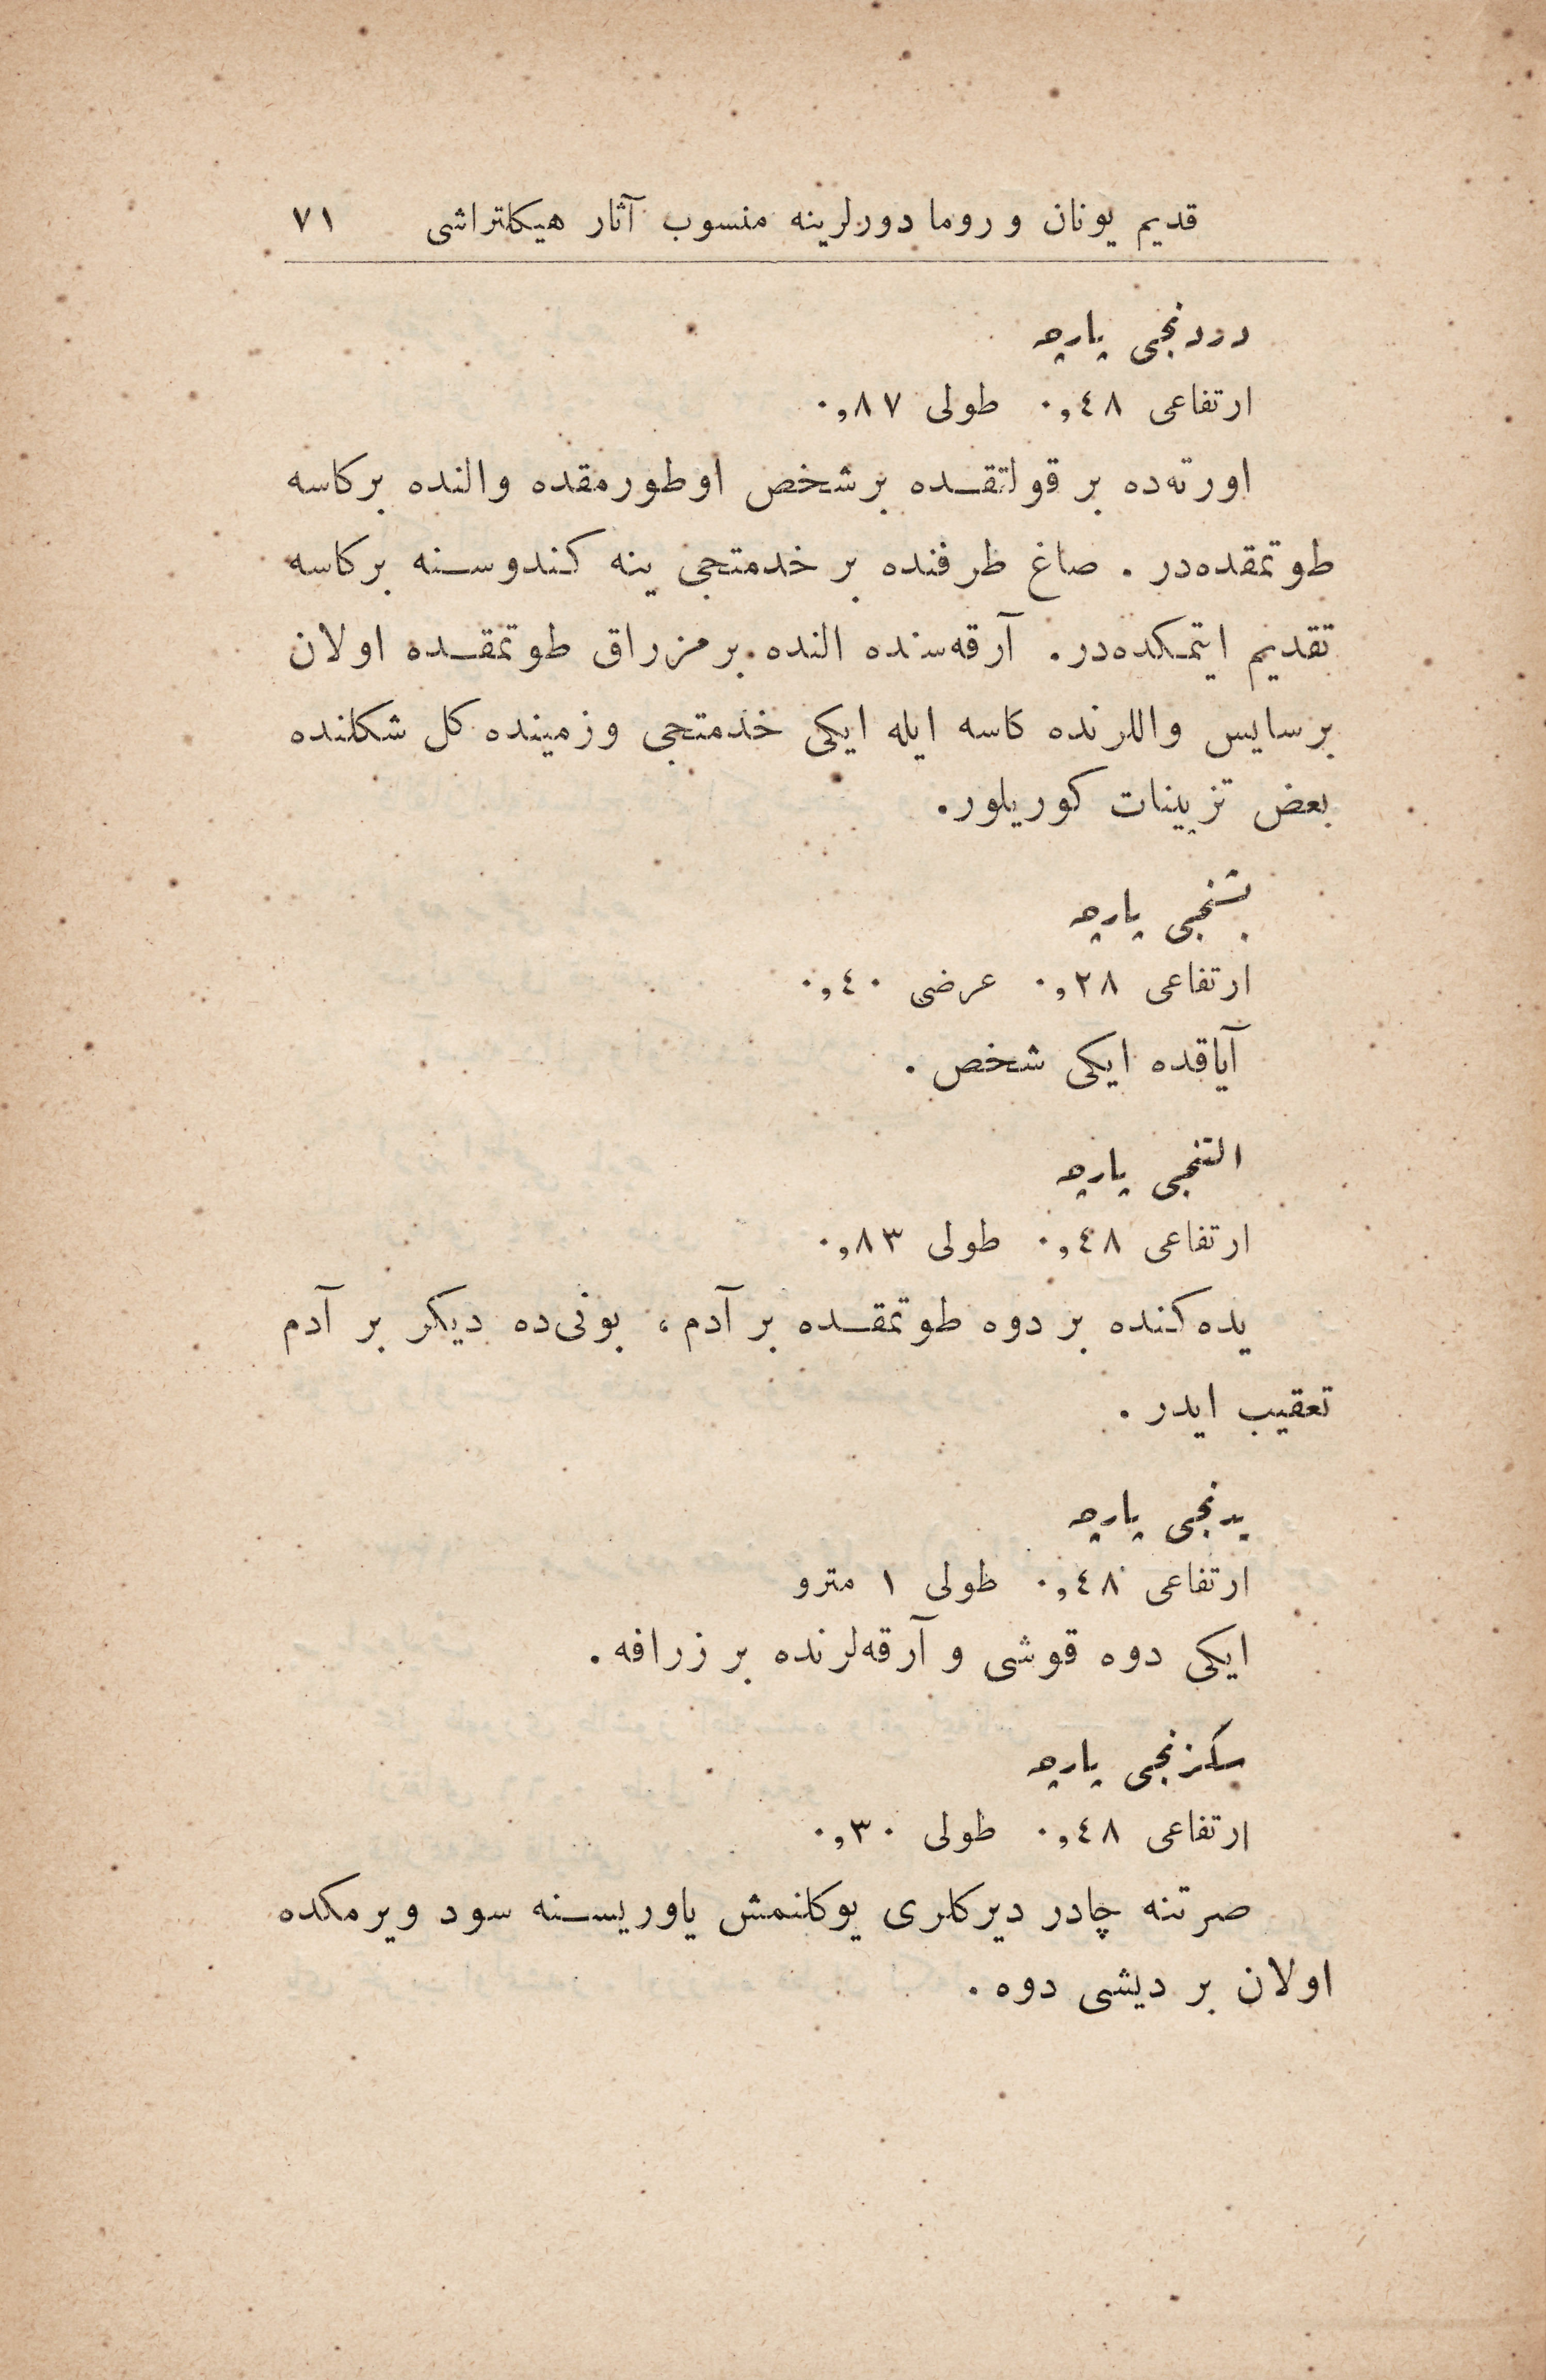 قدیم یونان و روما دورلرینه منسوب آثار هیکلتراشی ٧١
دردنجی پارچه
ارتفاعی ٠,٤٨ طولی ٠,٨٧
اورته‌ده بر قولتقده برشخص اوطورمقده والنده برکاسه
طوتمقده‌در . صاغ طرفنده بر خدمتجی ینه کندوسنه برکاسه
تقدیم ایتمکده‌در. آرقه‌سنده النده برمزراق طوتمقده اولان
برسایس واللرنده کاسه ایله ایکی خدمتجی وزمینده کل شکلنده
بعض تزیینات کوریلور.
بشنجی پارچه
ارتفاعی ٠,٢٨ عرضی ٠,٤٠
آیاقده ایکی شخص .
التنجی پارچه
ارتفاعی ٠,٤٨ طولی ٠,٨٣
یده‌کنده بر دوه طوتمقده بر آدم، بونی‌ده دیکر بر آدم
تعقیب ایدر .
یدنجی پارچه
ارتفاعی ٠,٤٨ طولی ١ مترو
ایکی دوه قوشی و آرقه‌لرنده بر زرافه .
سکزنجی پارچه
ارتفاعی ٠,٤٨ طولی ٠,٣٠
صرتنه چادر دیرکلری یوکلنمش یاوریسنه سود ویرمکده
اولان بر دیشی دوه .